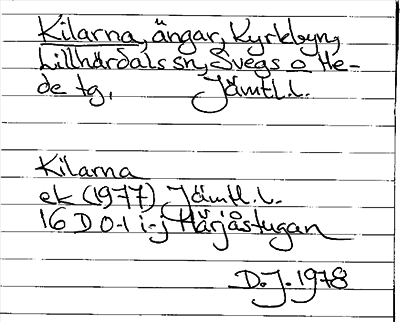 Kilarna, ängar, Kyrkbyn,
Lillhärdals sn, Svegs o He-
de tg, Jämtl.l.
Kilarna
ek (1977) Jämtl.l.
16 D 0-1 i-j Härjåstugan
D.J. 1978